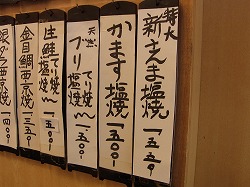 特大
新さんま塩焼 一五五〇
かます塩焼 一五〇〇
天然
ブリ てり焼 塩焼 一五〇〇
生鮭 てり焼 塩焼
金目鯛西京焼 一三五〇
銀ダラ西京焼 一四〇〇